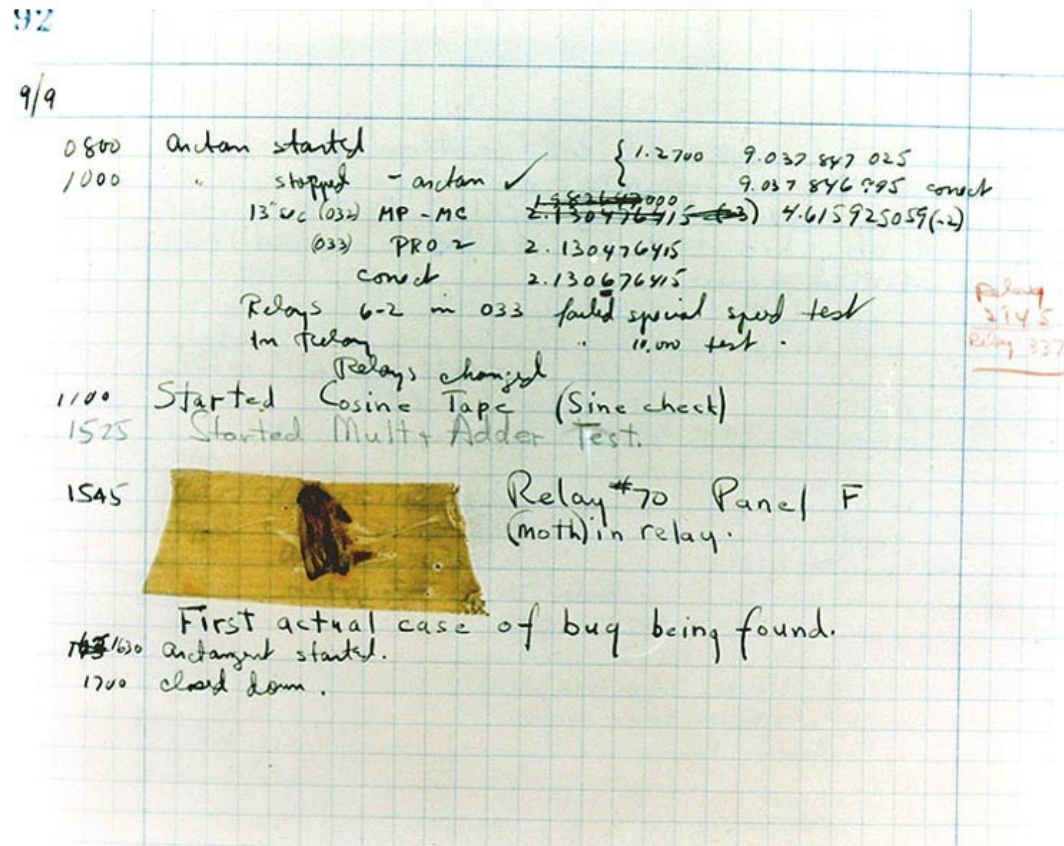 92
9/9
0800 Antan started { 1.2700 9.037 847 025
1000 " stopped - antan ✓ 9.037 846 995 conect
13"uc (032) MP - MC 1.982647000 2.130476415 (-3) 4.615925059(-2)
(033) PRO 2 2.130476415
conect 2.130676415
Relays 6-2 in 033 failed special speed test
In Relay " 10,000 test .
Relays changed
1100 Started Cosine Tape (Sine check)
1525 Started Mult + Adder Test.
1545 Relay #70 Panel F
(moth) in relay.
First actual case of bug being found.
1630 Antangent started.
1700 closed down.
Relay
2145
Relay 337